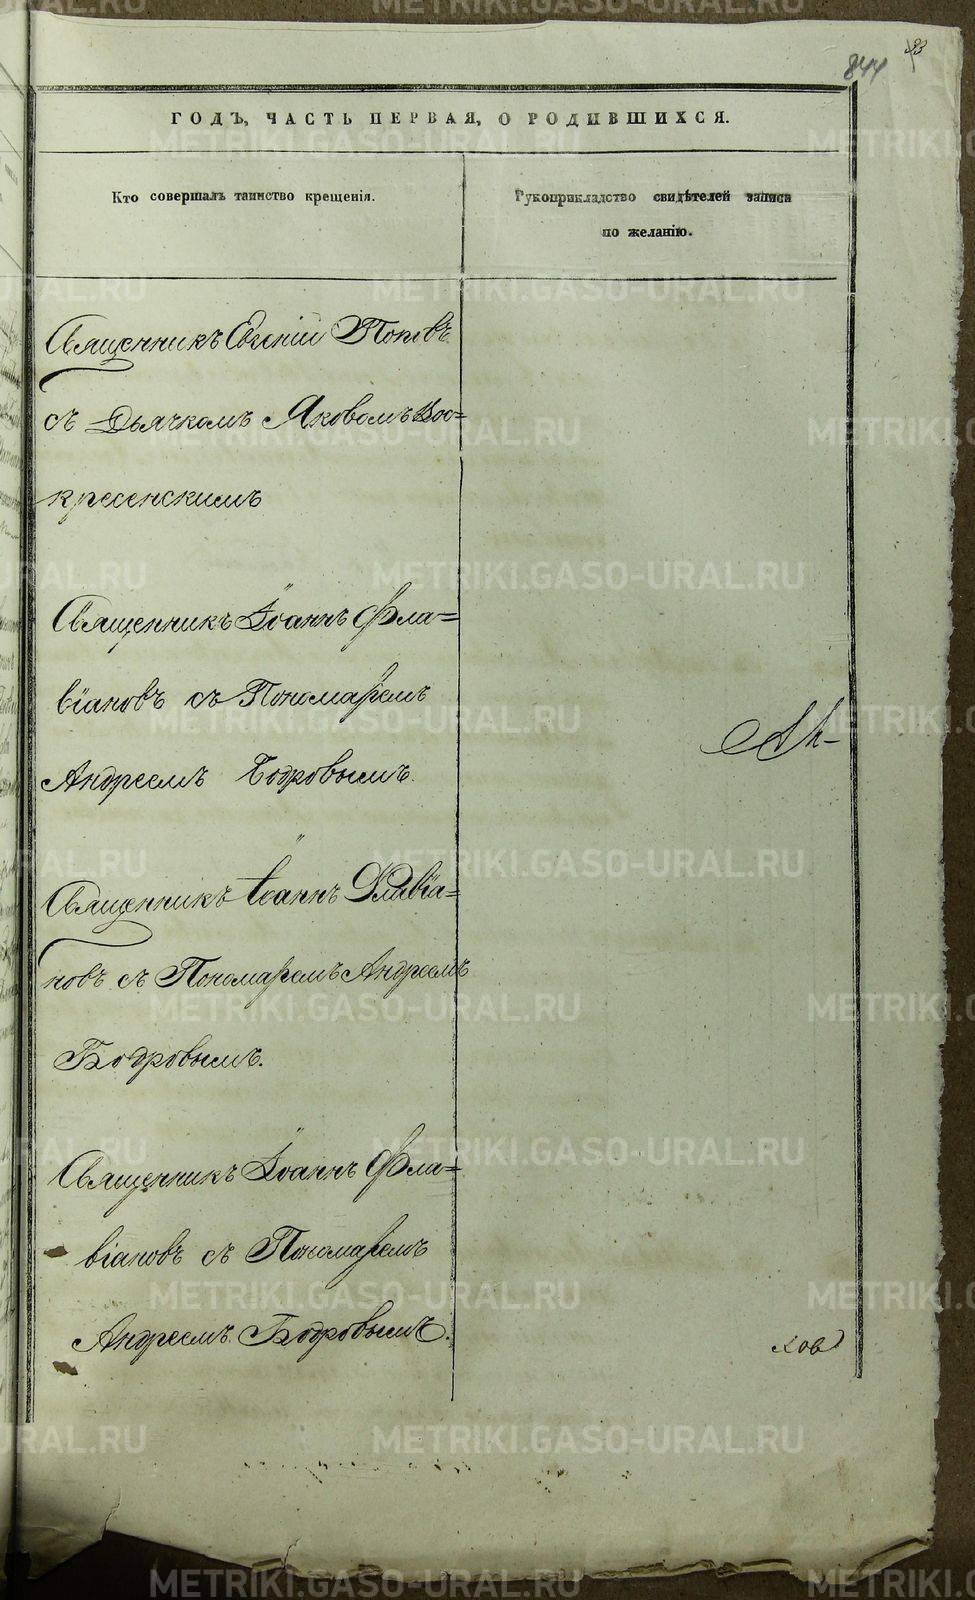 844
ГОДЪ, ЧАСТЬ ПЕРВАЯ, О РОДИВШИХСЯ.
Кто совершалъ таинство крещенія.
Рукоприкладство свидѣтелей записи
по желанію.
Священникъ Евгеній Поповъ
съ Дьячкомъ Яковомъ Вос=
кресенскимъ
Священникъ Іоаннъ Фла=
віановъ съ Пономаремъ
Андреемъ Бодровымъ.
Священникъ Іоаннъ Флавіа=
новъ съ Пономаремъ Андреемъ
Бодровымъ.
Священникъ Іоаннъ Фла=
віановъ съ Пономаремъ
Андреемъ Бодровымъ.
ков
METRIKI.GASO-URAL.RU